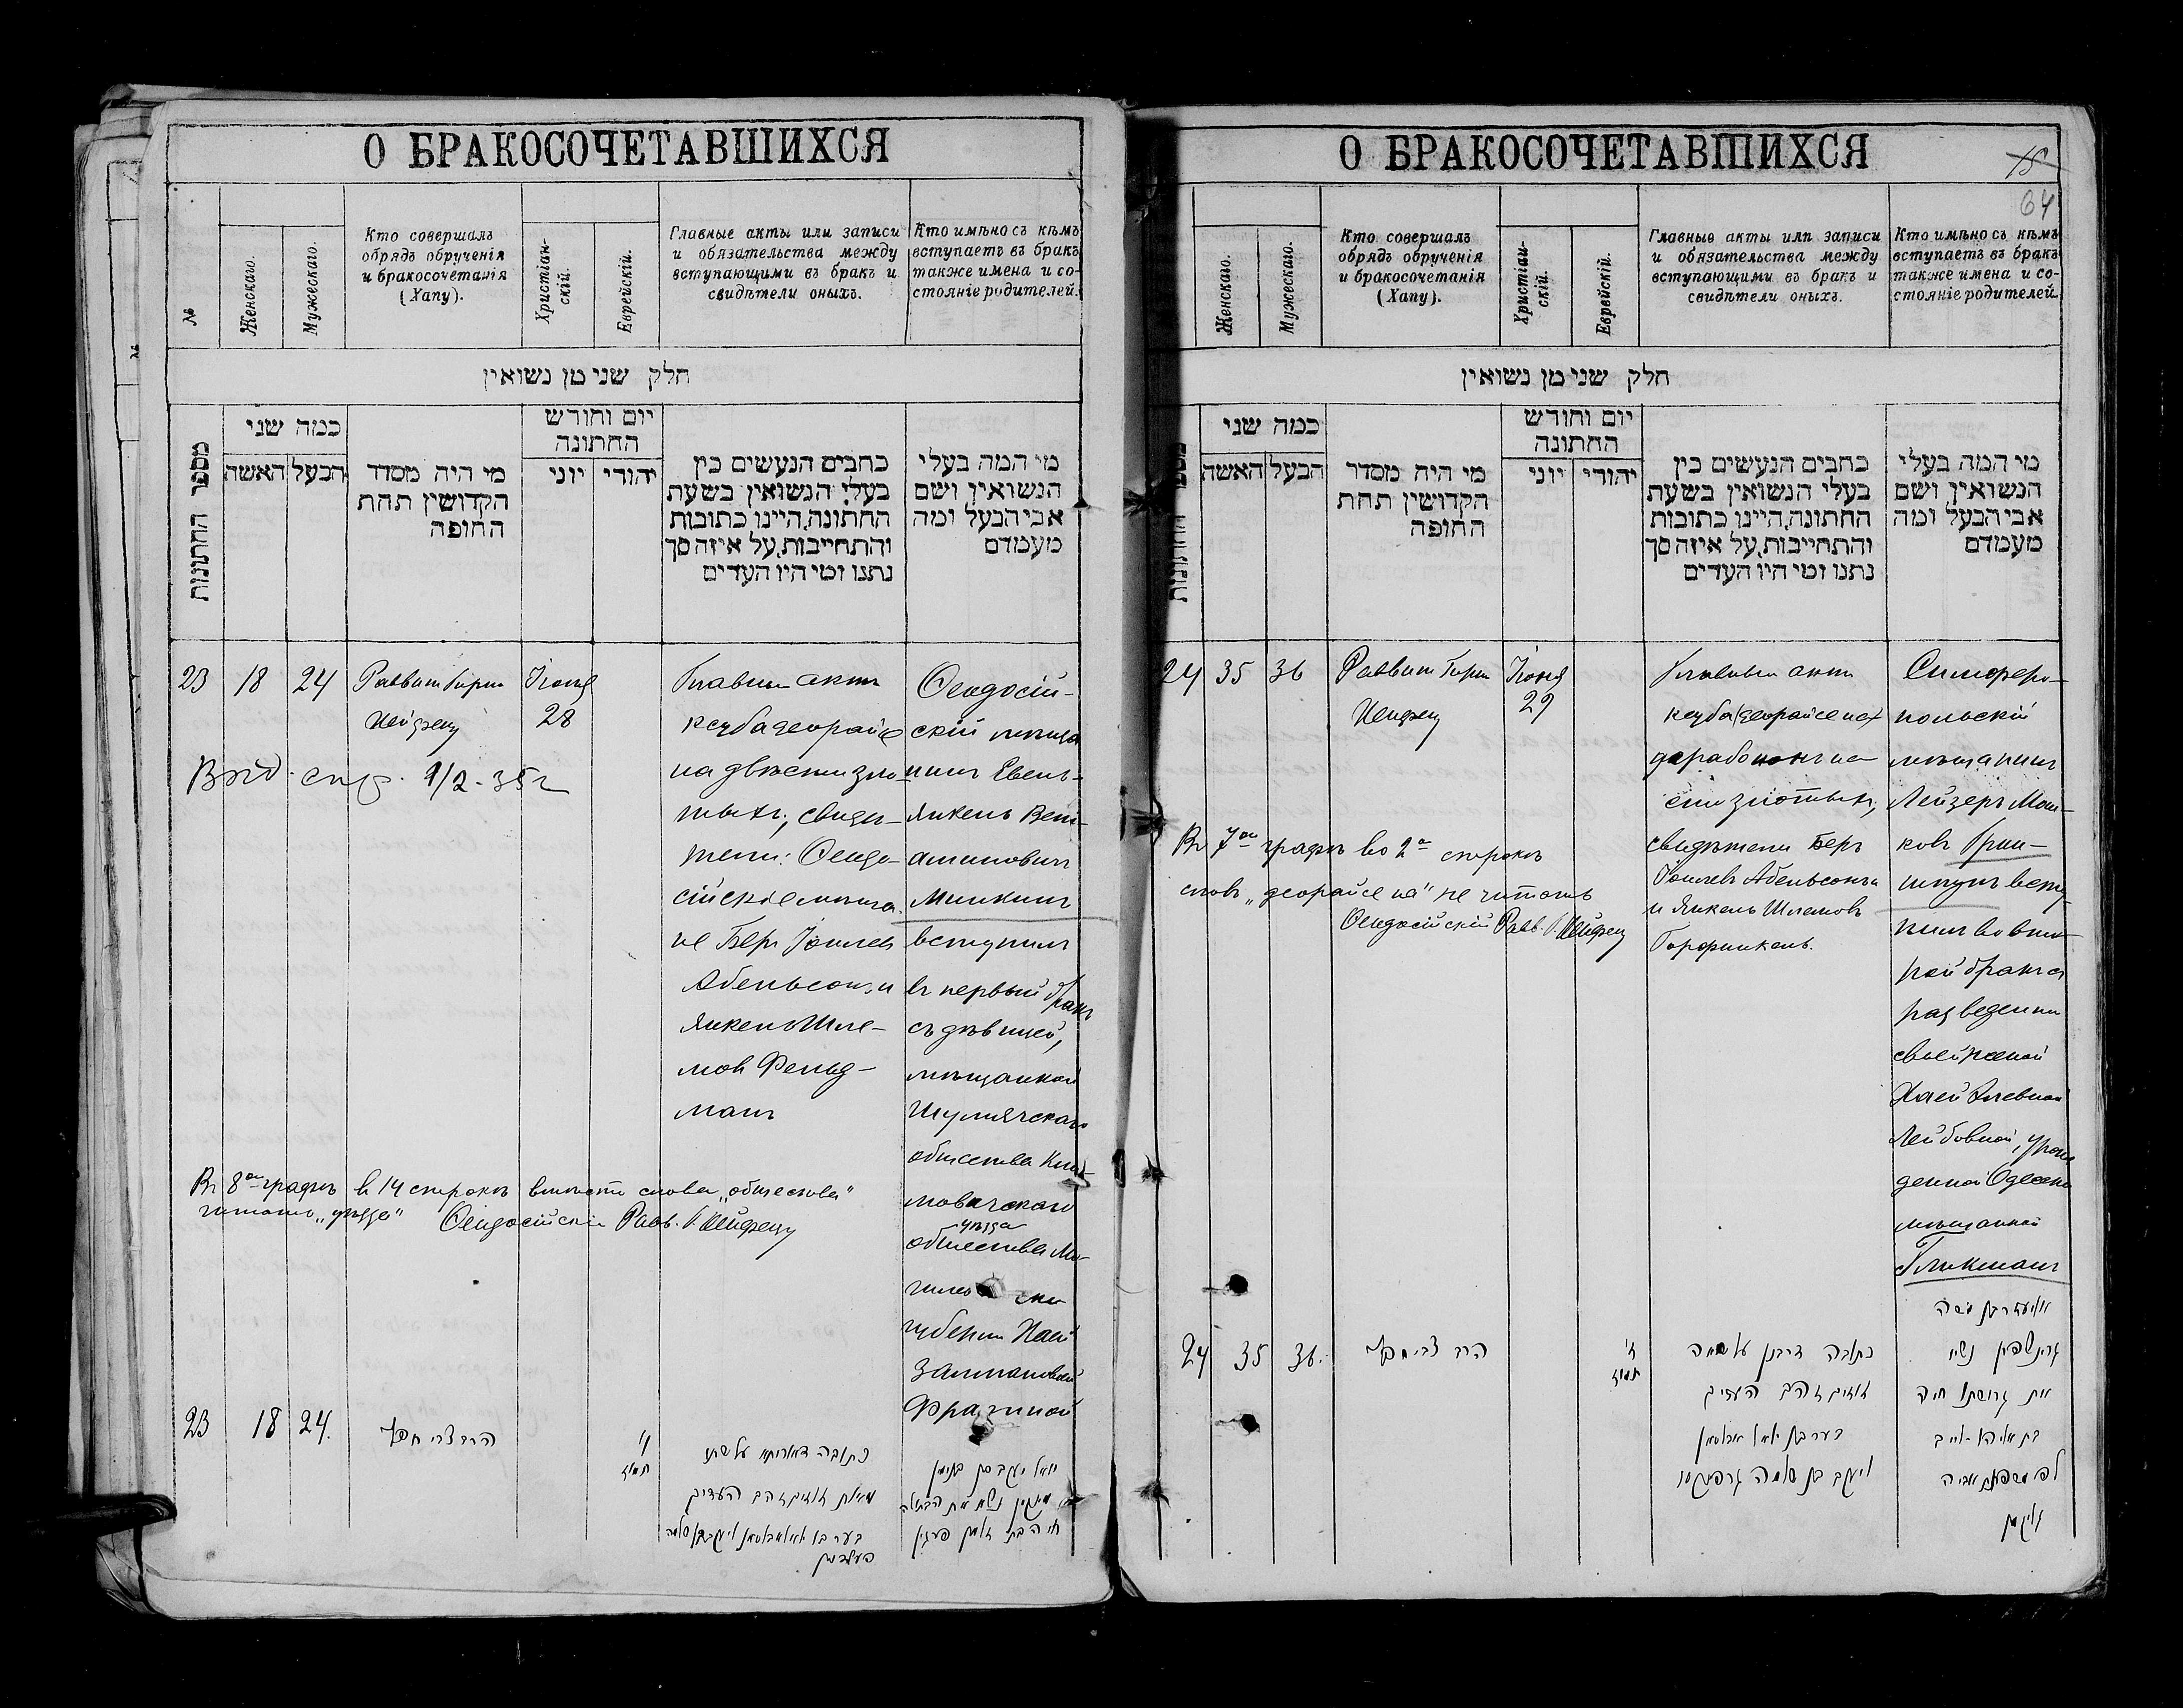 О БРАКОСОЧЕТАВШИХСЯ
№
Женскаго.
Мужескаго.
Кто совершалъ
обрядъ обрученія
и бракосочетанія
(Хапу).
Христіан-
скій.
Еврейскій.
Главные акты или записи
и обязательства между
вступающими въ бракъ и
свидѣтели оныхъ.
Кто имѣно съ кѣмъ
вступаетъ въ бракъ
также имена и со-
стояніе родителей.
חלק שני מן נשואין
מספר החתונות
כמה שני
האשה
הבעל
מי היה מסדר
הקדושין תחת
החופה
יום וחורש
החתונה
יוני
יהודי
כתבים הנעשים בין
בעלי הנשואין בשעת
החתונה,היינו כתובות
והתחייבות,על איזה סך
נתנו ומי היו העדים
מי המה בעלי
הנשואין ושם
אבי הבעל ומה
מעמדם
23
18
24
Раввинъ Гирш
Хейфец
Іюня
28
Главный актъ
кцуба деорайсе
на двѣсти зло-
тыхъ, свидѣ-
тели: Ѳеодо-
сійскіе мѣща-
не Беръ Іоилев
Абельсонъ и
Янкель Шле-
мов Фельд-
манъ
Ѳеодосій-
скій мѣща
нинъ Евель-
Янкель Вени-
аминовичъ
Минкинъ
вступилъ
въ первый бракъ
съ дѣвицей,
мѣщанкой
Шумячскаго
общества Кли-
мовичскаго
уѣзда
общества Мо-
губерніи Хаей
Залмановной
Фрагиной
Выд. спр. 1/2-35г
Въ 8ой графѣ в 14 строкѣ вмѣсто слова „общества"
читать „уѣзда" Ѳеодосійскій Равв. Г. Хейфецъ
23
18
24.
הרב צבי חפץ
ו'
תמוז
כתובה דאורייתא על שתי
מאות זהובים העדים
О БРАКОСОЧЕТАВШИХСЯ
15
64
Женскаго.
Мужескаго.
Кто совершалъ
обрядъ обрученія
и бракосочетанія
(Хапу).
Христіан-
скій.
Еврейскій.
Главные акты или записи
и обязательства между
вступающими въ бракъ и
свидѣтели оныхъ.
Кто имѣно съ кѣмъ
вступаетъ въ бракъ
также имена и со-
стояніе родителей.
חלק שני מן נשואין
מספר החתונות
כמה שני
האשה
הבעל
מי היה מסדר
הקדושין תחת
החופה
יום וחורש
החתונה
יוני
יהודי
כתבים הנעשים בין
בעלי הנשואין בשעת
החתונה,היינו כתובות
והתחייבות,על איזה סך
נתנו ומי היו העדים
מי המה בעלי
הנשואין ושם
אבי הבעל ומה
מעמדם
24
35
36
Раввинъ Гирш
Хейфец
Іюня
29
Главный актъ
кцуба (деорайсе на)
дерабононъ на
сто злотыхъ,
свидѣтели Беръ
Іоилевъ Абельсонъ
и Янкель Шлемовъ
Горфинкель.
Симферо-
польскій
мѣщанинъ
Лейзеръ Мош-
ковъ Грин-
шпунъ всту-
пилъ во вто-
рой бракъ съ
разведенной
своей женой
Хаей
Лейбовной, урож
денной Одесск.
мѣщанкой
Гликманъ
Въ 7ой графѣ во 2й строкѣ
словъ „деорайсе на" не читать
Ѳеодосійскій Равв. Г. Хейфец
24
35
36.
הרב צבי חפץ
ז'
תמוז
כתובה דרבנן על מאה
זהובים העדים